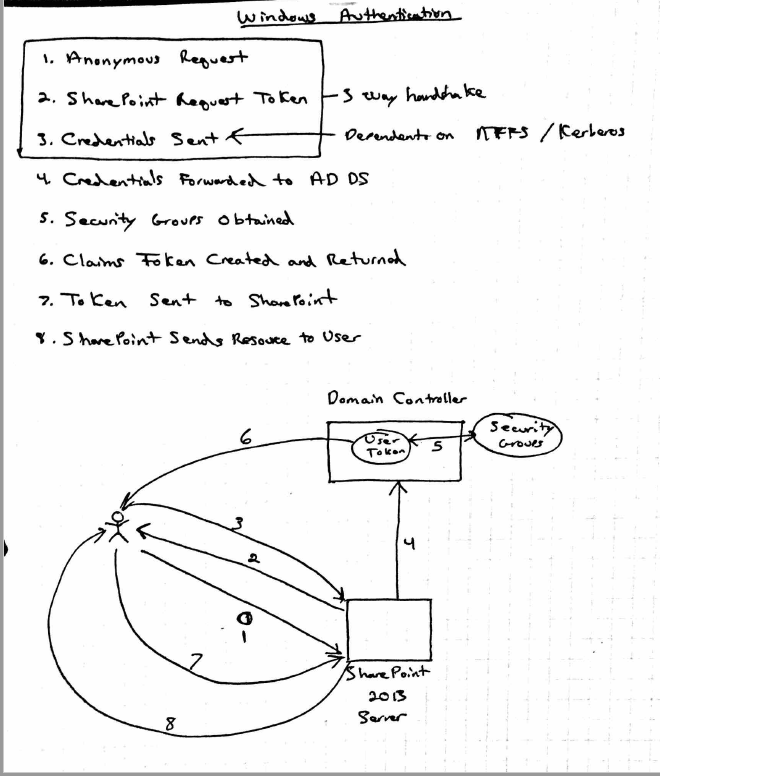 Windows Authentication
1. Anonymous Request
2. SharePoint Request Token - 3 way handshake
3. Credentials Sent Dependent on NTFS / Kerberos
4. Credentials Forwarded to AD DS
5. Security Groups Obtained
6. Claims Token Created and Returned
7. Token Sent to SharePoint
8. SharePoint Sends Resource to User
Domain Controller
User
Token
5
Security
Groups
6
3
2
4
1
7
SharePoint
2013
Server
8